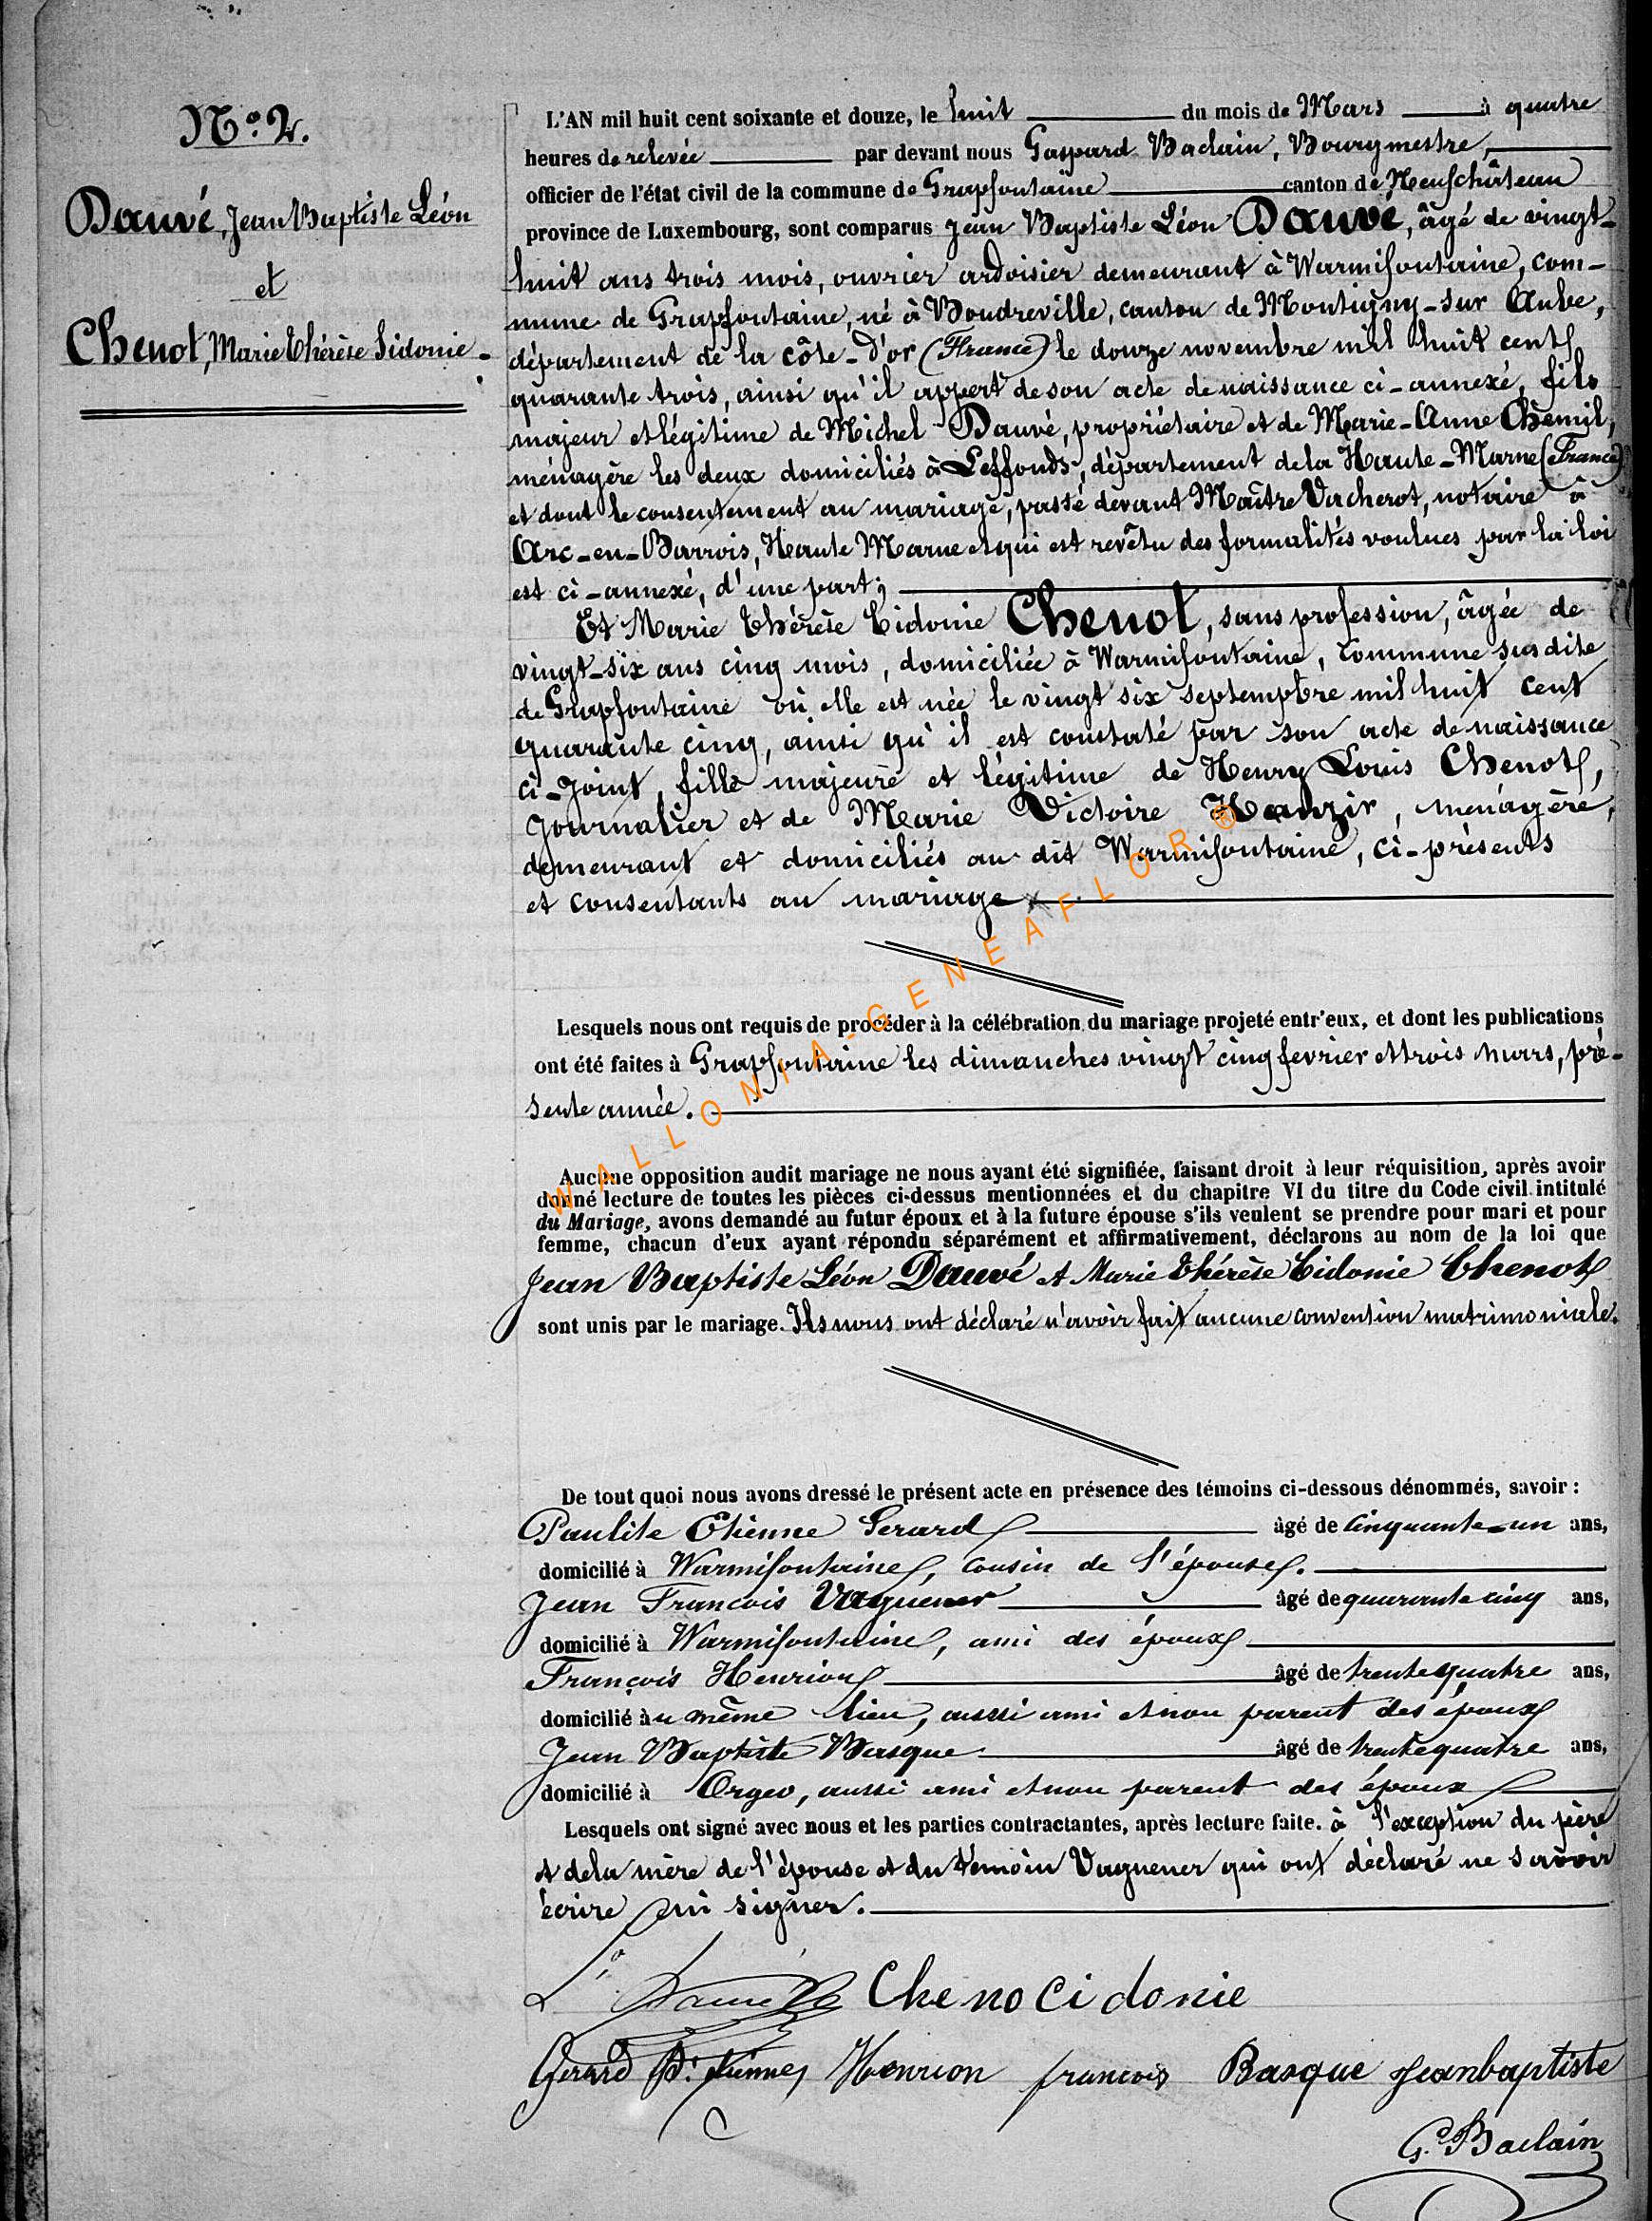 N° 2.
Dauvé, Jean Baptiste Léon
et
Chenot, Marie Thérèse Sidonie.
L'AN mil huit cent soixante et douze, le huit du mois de Mars à quatre
heures de relevée par devant nous Gaspard Baclain, Bourgmestre,
officier de l'état civil de la commune de Grapfontaine canton de Neufchâteau
province de Luxembourg, sont comparus Jean Baptiste Léon Dauvé, âgé de vingt-
huit ans trois mois, ouvrier ardoisier demeurant à Warmifontaine, com-
mune de Grapfontaine, né à Boudreville, canton de Montigny-sur Aube,
département de la côte-d'or (France) le douze novembre mil huit cent
quarante trois, ainsi qu'il appert de son acte de naissance ci-annexé, fils
majeur et légitime de Michel Dauvé, propriétaire et de Marie-Anne Chemil,
ménagère les deux domiciliés à Leffonds, département de la Haute-Marne (France)
et dont le consentement au mariage, passé devant Maître Vacherot, notaire à
Arc-en-Barrois, Haute Marne et qui est revêtu des formalités voulues par la loi
est ci-annexé, d'une part;
Et Marie Thérèse Cidonie Chenot, sans profession, âgée de
vingt-six ans cinq mois, domiciliée à Warmifontaine, commune susdite
de Grapfontaine où elle est née le vingt six septembre mil huit cent
quarante cinq, ainsi qu'il est constaté par son acte de naissance
ci-joint, fille majeure et légitime de Henry Louis Chenot,
journalier et de Marie Victoire Hanzir, ménagère,
demeurant et domiciliés au dit Warmifontaine, ci-présents
et consentants au mariage
WALLONIA-GENEAFLOR®
Lesquels nous ont requis de procéder à la célébration du mariage projeté entr'eux, et dont les publications
ont été faites à Grapfontaine les dimanches vingt cinq fevrier et trois mars, pré-
sente année.
Aucune opposition audit mariage ne nous ayant été signifiée, faisant droit à leur réquisition, après avoir
donné lecture de toutes les pièces ci-dessus mentionnées et du chapitre VI du titre du Code civil intitulé
du Mariage, avons demandé au futur époux et à la future épouse s'ils veulent se prendre pour mari et pour
femme, chacun d'eux ayant répondu séparément et affirmativement, déclarons au nom de la loi que
Jean Baptiste Léon Dauvé et Marie Thérèse Cidonie Chenot
sont unis par le mariage. Ils nous ont déclaré n'avoir fait aucune convention matrimoniale.
De tout quoi nous avons dressé le présent acte en présence des témoins ci-dessous dénommés, savoir :
Etienne Gerard âgé de cinquante-un ans,
domicilié à Warmifontaine, cousin de l'épouse.
Jean François Vaguener âgé de quarante cinq ans,
domicilié à Warmifontaine, ami des époux
François Henrion âgé de trente quatre ans,
domicilié àu même lieu, aussi ami et non parent des époux
Jean Baptiste Basque âgé de trente quatre ans,
domicilié à Orgeo, aussi ami et non parent des époux
Lesquels ont signé avec nous et les parties contractantes, après lecture faite. à l'exception du père
et de la mère de l'épouse et du témoin Vaguener qui ont déclaré ne savoir
écrire ni signer.
Dauvé Chenocidonie
Gerard Henrion francois Basque Jeanbaptiste
G. Baclain